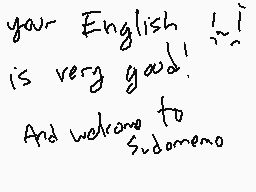 your English
is very good!
And welcome to
Sudomemo